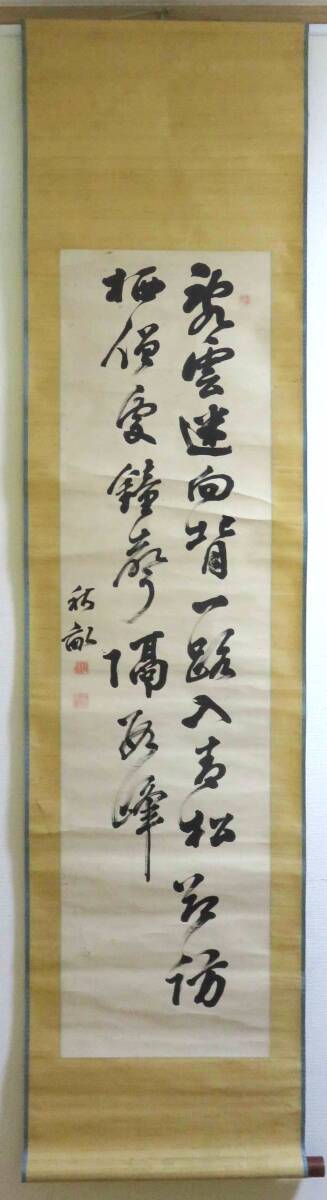 亂雲迷向背一路入青松欲訪
栖僧處鐘聲隔數峰
秋畝